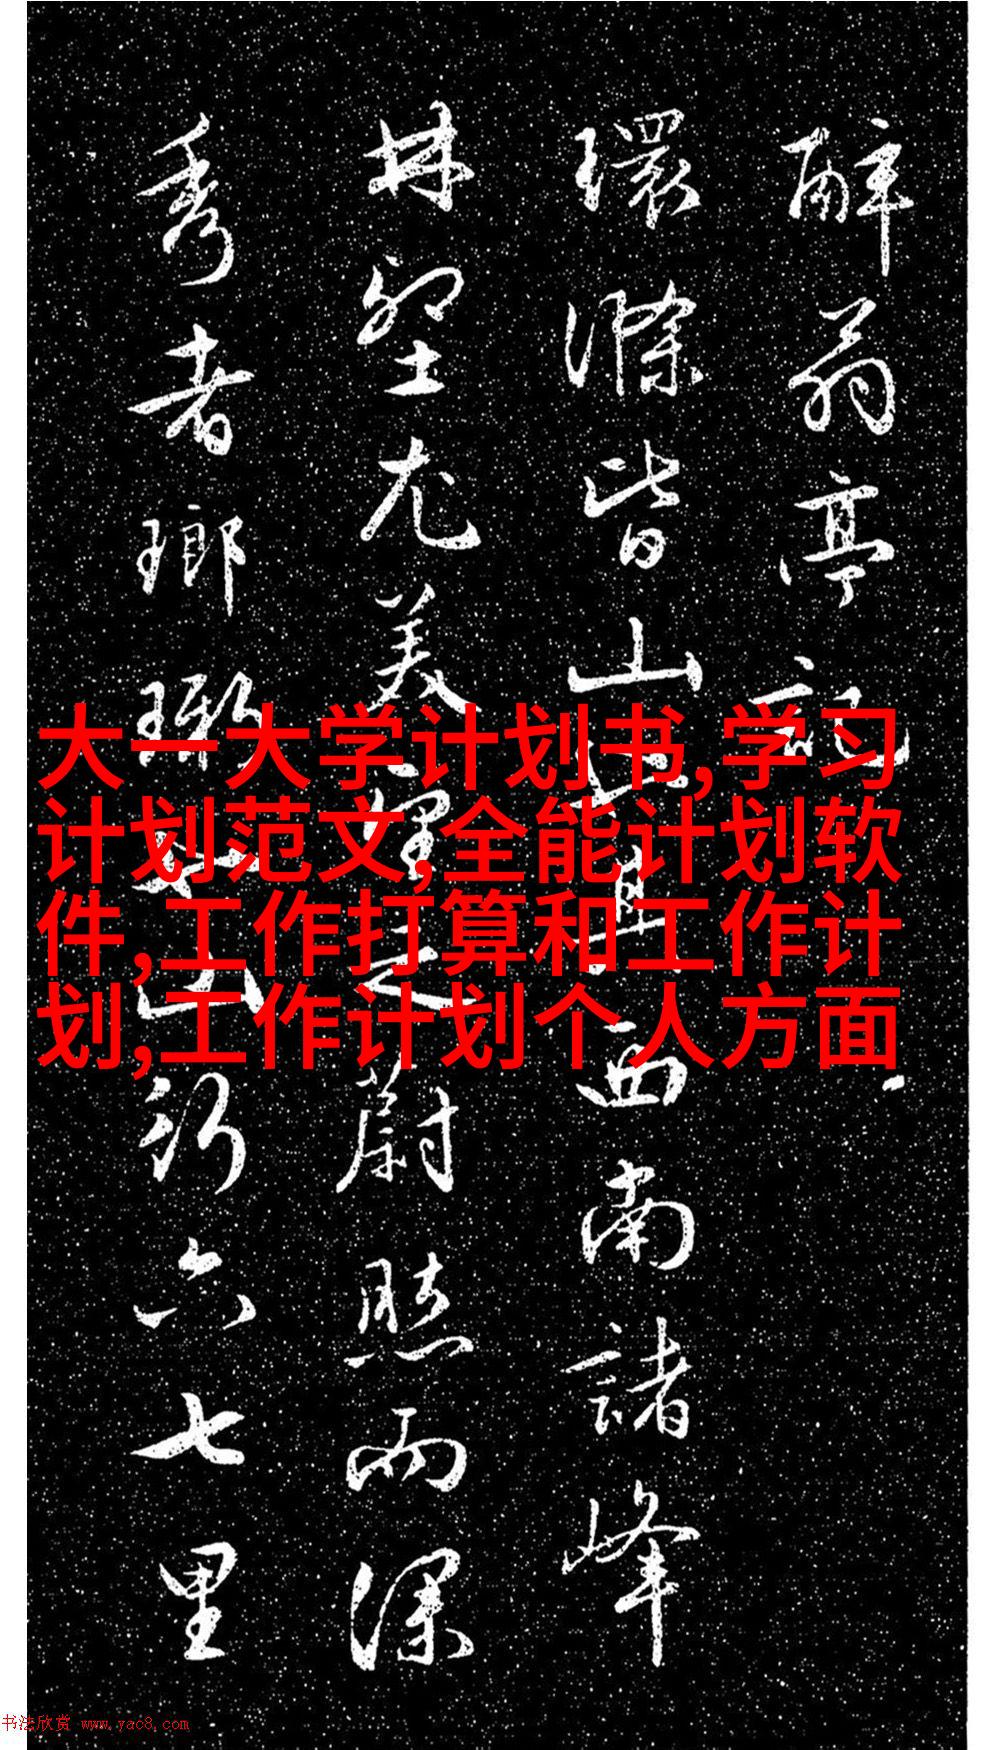 醉翁亭記
環滁皆山也其西南諸峰
林壑尤美望之蔚然而深
秀者瑯琊也山行六七里
大一大学计划书,学习
计划范文,全能计划软
件,工作打算和工作计
划,工作计划个人方面
书法欣赏 www.yac8.com